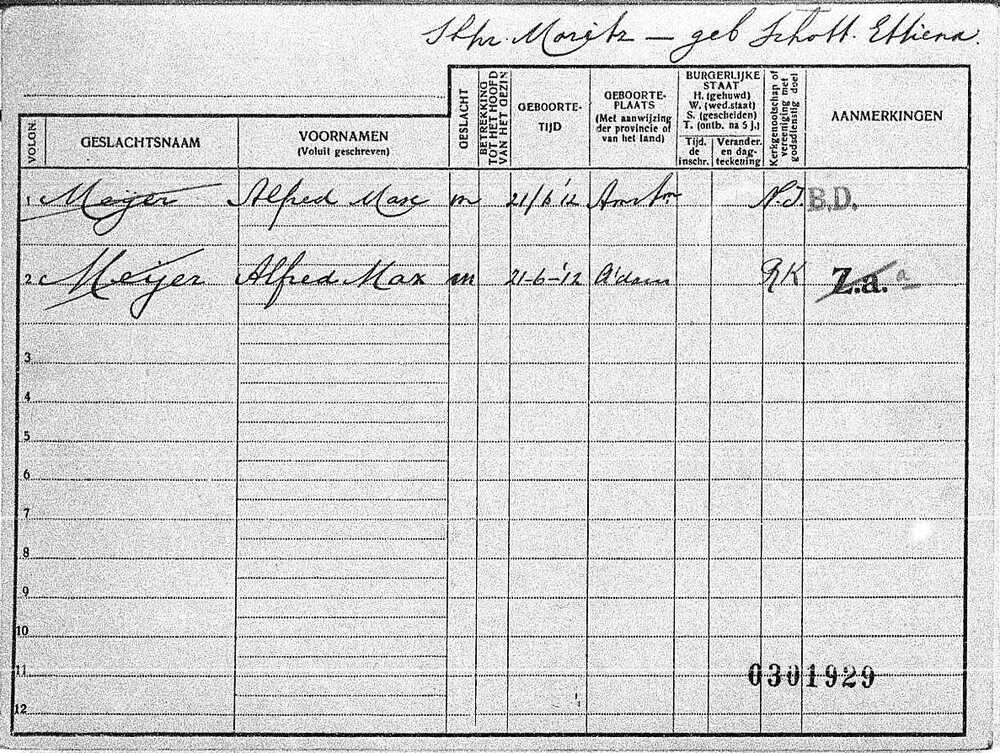 Moritz — geb Schott.
VOLGN.
GESLACHTSNAAM
VOORNAMEN
(Voluit geschreven)
GESLACHT
BETREKKING
TOT HET HOOFD
VAN HET GEZIN
GEBOORTE-
TIJD
GEBOORTE-
PLAATS
(Met aanwijzing
der provincie of
van het land)
BURGERLIJKE
STAAT
H. (gehuwd)
W. (wed.staat)
S. (gescheiden)
T. (ontb. na 5 j.)
Tijd.
de
inschr.
Verander.
en dag-
teekening
Kerkgenootschap of
vereeniging met
godsdienstig doel
AANMERKINGEN
1 Meijer Alfred Max m 21/6 '12 N.I. B.D.
2 Meijer Alfred Max m 21-6-'12 A'dam RK Z.a. a
3
4
5
6
7
8
9
10
11
0301929
12